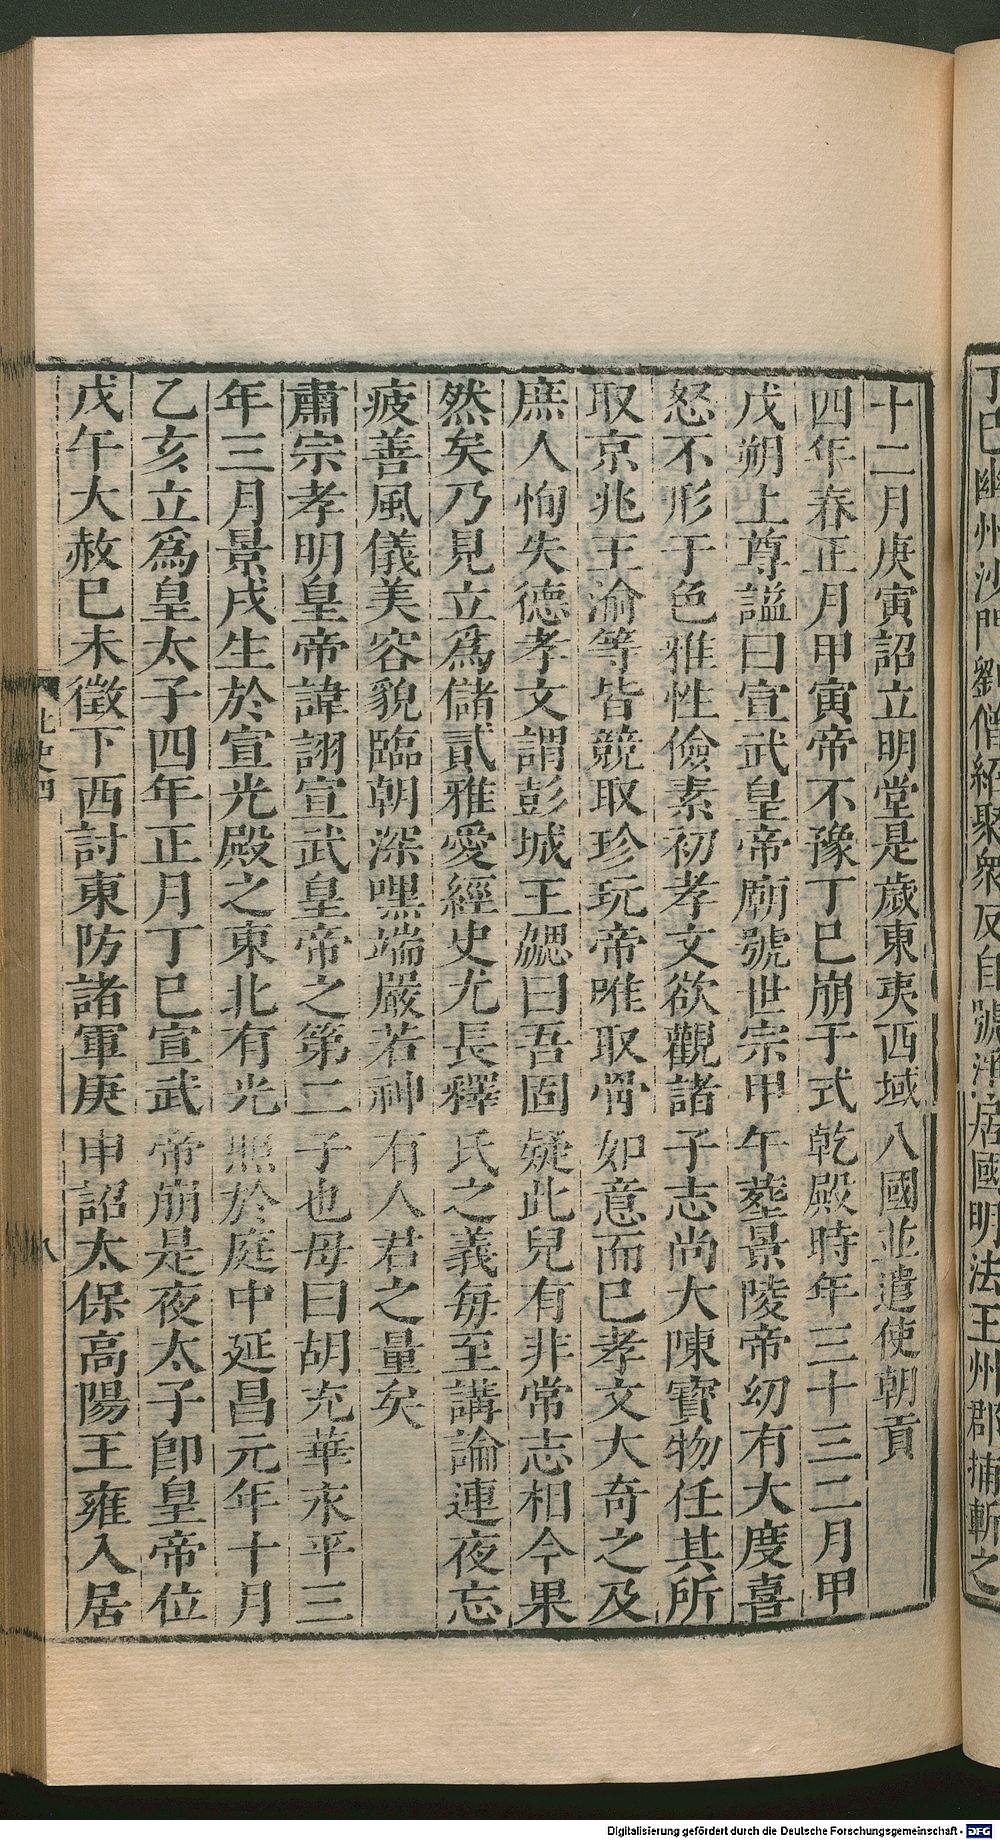 丁巳幽州沙門劉僧紹聚衆反自號淨居國明法王州郡捕斬之
十二月庚寅詔立明堂是歲東夷西域八國並遣使朝貢
四年春正月甲寅帝不豫丁巳崩于式乾殿時年三十三二月甲
戊朔上尊謚曰宣武皇帝廟號世宗甲午塟景陵帝幼有大度喜
怒不形于色雅性儉素初孝文欲觀諸子志尚大陳寶物任其所
取京兆王渝等皆競取珍玩帝唯取骨如意而已孝文大奇之及
庶人恂失德孝文謂彭城王勰曰吾固疑此兒有非常志相今果
然矣乃見立爲儲貳雅愛經史尤長釋氏之義每至講論連夜忘
疲善風儀美容貌臨朝深嘿端嚴若神有人君之量矣
肅宗孝明皇帝諱詡宣武皇帝之第二子也母曰胡充華永平三
年三月景戌生於宣光殿之東北有光照於庭中延昌元年十月
乙亥立爲皇太子四年正月丁巳宣武帝崩是夜太子卽皇帝位
戊午大赦巳未徵下西討東防諸軍庚申詔太保高陽王雍入居
北史四
八
Digitalisierung gefördert durch die Deutsche Forschungsgemeinschaft - DFG